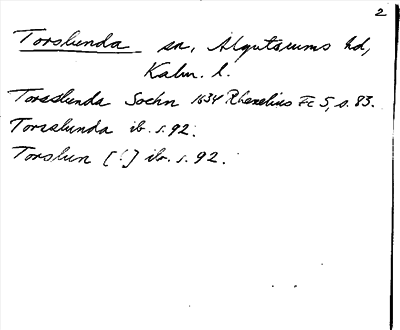 2
Torslunda sn, Algutsrums hd,
Kalm. l.
Torsslunda Sochn 1634 Rhezelius Fc 5, s. 83.
Torsslunda ib. s. 92.
Torslun [!] ib. s. 92.